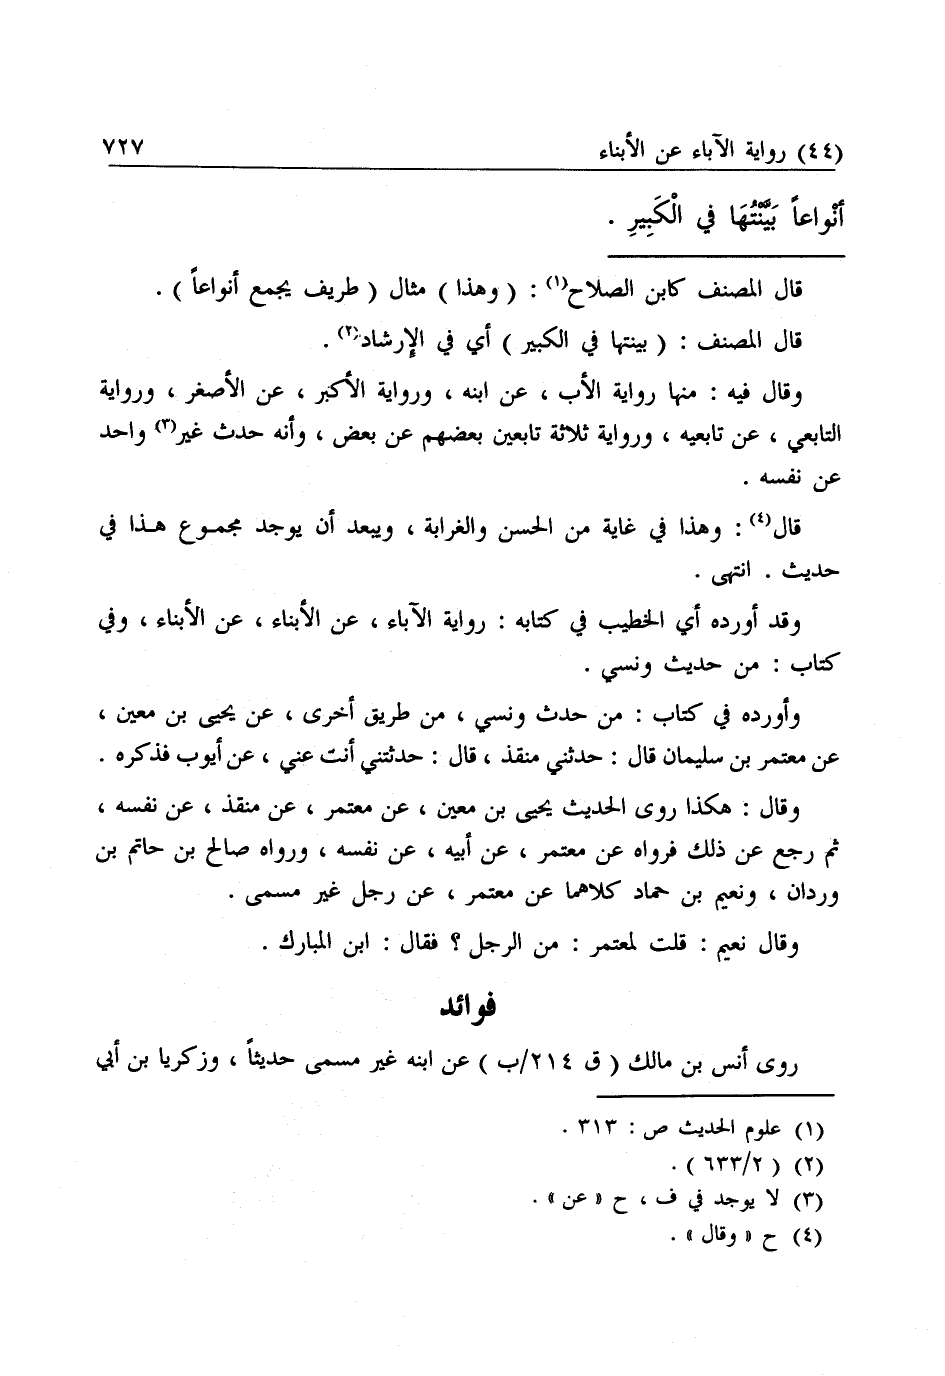 (٤٤) رواية الآباء عن الأبناء ٧٢٧
أَنْواعاً بَيَّنْتُهَا في الْكَبِيرِ .
قال المصنف كابن الصلاح(١) : ( وهذا ) مثال ( طريف يجمع أنواعاً ) .
قال المصنف : ( بينتها في الكبير ) أي في الإرشاد(٢) .
وقال فيه : منها رواية الأب ، عن ابنه ، ورواية الأكبر ، عن الأصغر ، ورواية
التابعي ، عن تابعيه ، ورواية ثلاثة تابعين بعضهم عن بعض ، وأنه حدث غير(٣) واحد
عن نفسه .
قال(٤) : وهذا في غاية من الحسن والغرابة ، ويبعد أن يوجد مجموع هذا في
حديث . انتهى .
وقد أورده أي الخطيب في كتابه : رواية الآباء ، عن الأبناء ، عن الأبناء ، وفي
كتاب : من حديث ونسي .
وأورده في كتاب : من حدث ونسي ، من طريق أخرى ، عن يحيى بن معين ،
عن معتمر بن سليمان قال : حدثني منقذ ، قال : حدثتني أنت عني ، عن أيوب فذكره .
وقال : هكذا روى الحديث يحيى بن معين ، عن معتمر ، عن منقذ ، عن نفسه ،
ثم رجع عن ذلك فرواه عن معتمر ، عن أبيه ، عن نفسه ، ورواه صالح بن حاتم بن
وردان ، ونعيم بن حماد كلاهما عن معتمر ، عن رجل غير مسمى .
وقال نعيم : قلت لمعتمر : من الرجل ؟ فقال : ابن المبارك .
فوائد
روى أنس بن مالك ( ق ٢١٤/ب ) عن ابنه غير مسمى حديثاً ، وزكريا بن أبي
(١) علوم الحديث ص : ٣١٣ .
(٢) ( ٦٣٣/٢ ) .
(٣) لا يوجد في ف ، ح « عن » .
(٤) ح « وقال » .